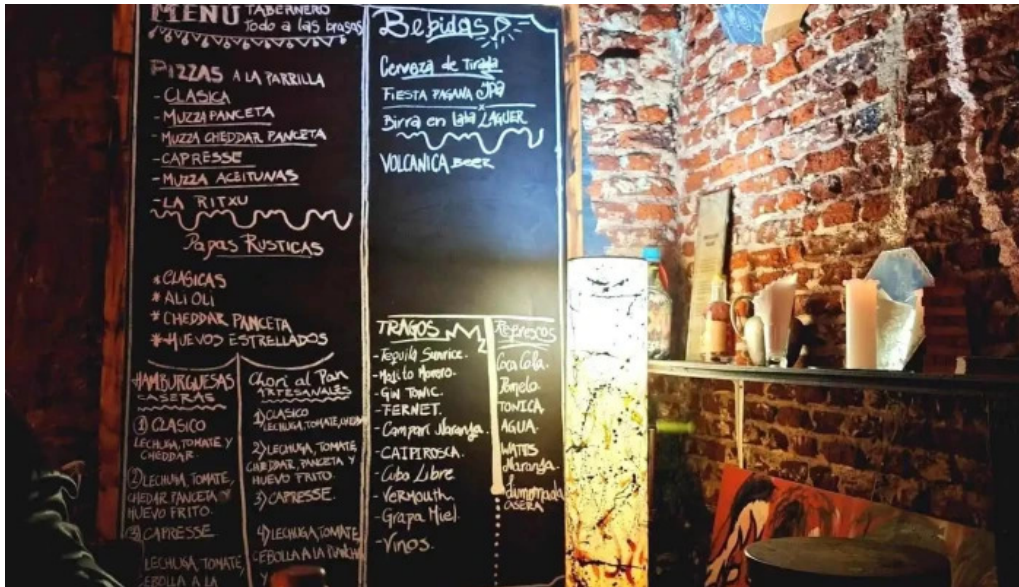 MENU TABERNERO
todo a las brasas
PIZZAS A LA PARRILLA
- CLASICA
- MUZZA PANCETA
- MUZZA CHEDDAR PANCETA
- CAPRESSE
- MUZZA ACEITUNAS
- LA RITXU
Papas RUSTICAS
* CLASICAS
* ALI OLI
* CHEDDAR PANCETA
* HUEVOS ESTRELLADOS
HAMBURGUESAS
CASERAS
① CLASICO
LECHUGA, TOMATE Y
CHEDDAR.
② LECHUGA, TOMATE,
CHEDAR PANCETA Y
HUEVO FRITO.
③ CAPRESSE
LECHUGA, TOMATE
CEBOLLA A LA
Chori al Pan
ARTESANALES
1) CLASICO
LECHUGA, TOMATE,
2) LECHUGA, TOMATE,
CHEDDAR, PANCETA Y
HUEVO FRITO.
3) CAPRESSE.
4) LECHUGA, TOMATE
CEBOLLA A LA PLANCHA
Y
Bebidas
Cerveza de Tirada
FIESTA PAGANA IPA
Birra en lata LAGUER
VOLCANICA BEER
TRAGOS
- Tequila Sunrice.
- Mojito Mororo.
- Gin Tonic.
- FERNET.
- Campari Naranja.
- CAIPIROSCA.
- Cuba Libre
- VERMOUTH
- Grapa Miel.
- Vinos.
Refrescos
Coca Cola.
Pomelo.
TONICA.
AGUA.
WATTS
Naranja.
Limonada
CASERA